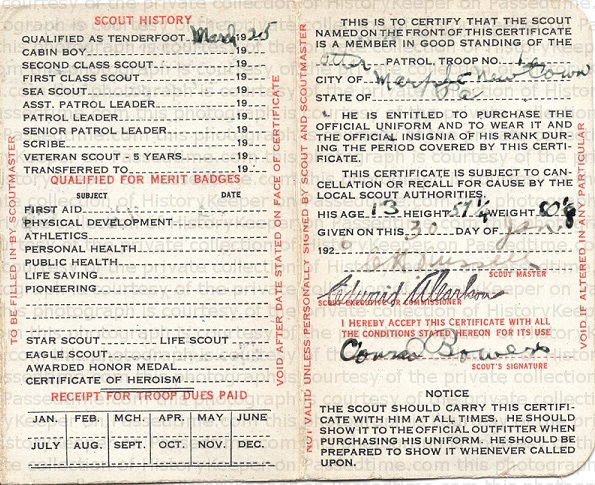 SCOUT HISTORY
QUALIFIED AS TENDERFOOT March 19 25
CABIN BOY 19
SECOND CLASS SCOUT 19
FIRST CLASS SCOUT 19
SEA SCOUT 19
ASST. PATROL LEADER 19
PATROL LEADER 19
SENIOR PATROL LEADER 19
SCRIBE 19
VETERAN SCOUT - 5 YEARS 19
TRANSFERRED TO 19
QUALIFIED FOR MERIT BADGES
SUBJECT DATE
FIRST AID
PHYSICAL DEVELOPMENT
ATHLETICS
PERSONAL HEALTH
PUBLIC HEALTH
LIFE SAVING
PIONEERING
STAR SCOUT LIFE SCOUT
EAGLE SCOUT
AWARDED HONOR MEDAL
CERTIFICATE OF HEROISM
RECEIPT FOR TROOP DUES PAID
JAN. FEB. MCH. APR. MAY JUNE
JULY AUG. SEPT. OCT. NOV. DEC.
TO BE FILLED IN BY SCOUTMASTER
VOID AFTER DATE STATED ON FACE OF CERTIFICATE
NOT VALID UNLESS PERSONALLY SIGNED BY SCOUT AND SCOUTMASTER
THIS IS TO CERTIFY THAT THE SCOUT
NAMED ON THE FRONT OF THIS CERTIFICATE
IS A MEMBER IN GOOD STANDING OF THE
Otter PATROL, TROOP NO.
CITY OF Town
STATE OF Pa
HE IS ENTITLED TO PURCHASE THE
OFFICIAL UNIFORM AND TO WEAR IT AND
THE OFFICIAL INSIGNIA OF HIS RANK DUR-
ING THE PERIOD COVERED BY THIS CERTI-
FICATE.
THIS CERTIFICATE IS SUBJECT TO CAN-
CELLATION OR RECALL FOR CAUSE BY THE
LOCAL SCOUT AUTHORITIES.
HIS AGE 13 HEIGHT 57 1/4 WEIGHT
GIVEN ON THIS 30 DAY OF Jan.
192
SCOUT MASTER
Edward
SCOUT EXECUTIVE OR COMMISSIONER
I HEREBY ACCEPT THIS CERTIFICATE WITH ALL
THE CONDITIONS STATED HEREON FOR ITS USE
Conrad Bowers
SCOUT'S SIGNATURE
NOTICE
THE SCOUT SHOULD CARRY THIS CERTIFI-
CATE WITH HIM AT ALL TIMES. HE SHOULD
SHOW IT TO THE OFFICIAL OUTFITTER WHEN
PURCHASING HIS UNIFORM. HE SHOULD BE
PREPARED TO SHOW IT WHENEVER CALLED
UPON.
VOID IF ALTERED IN ANY PARTICULAR